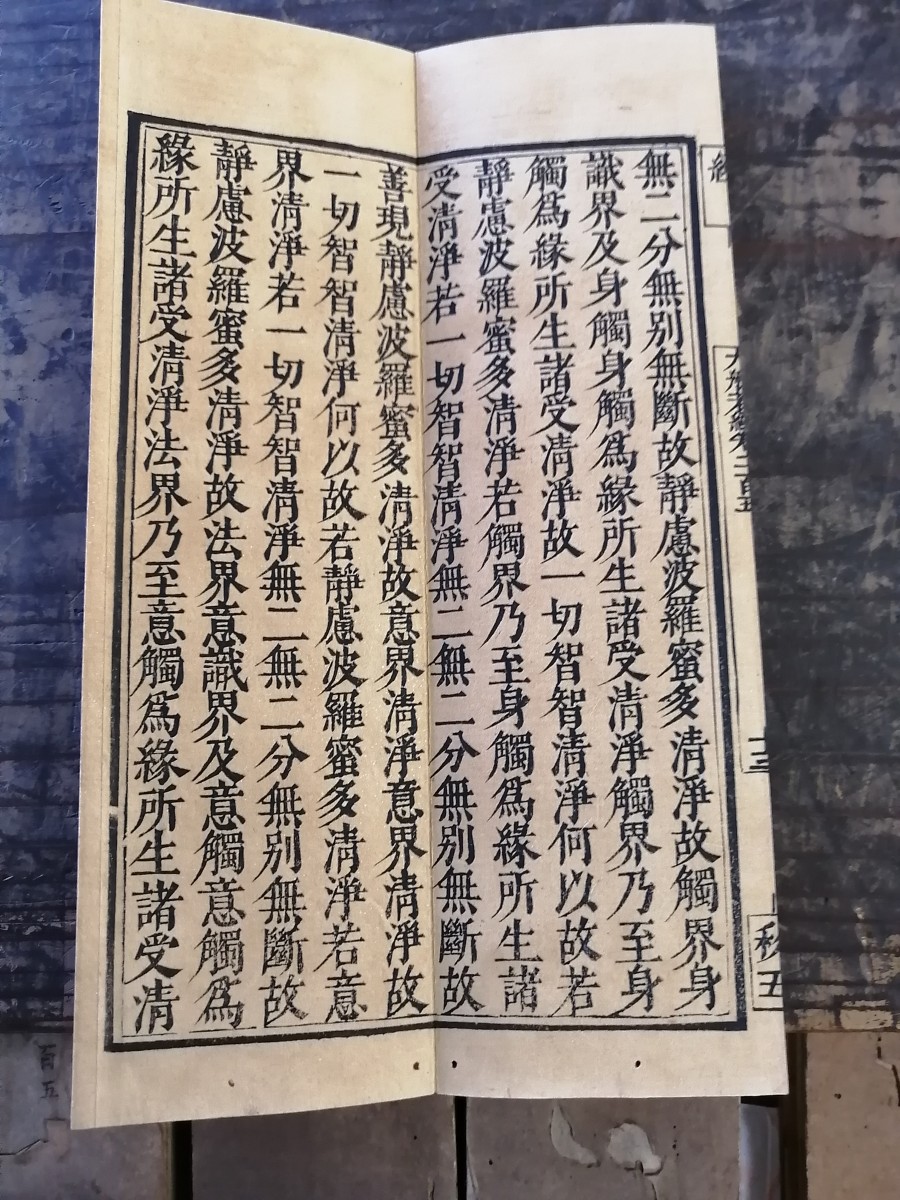 無二分無別無斷故靜慮波羅蜜多清淨故觸界身
識界及身觸身觸為緣所生諸受清淨觸界乃至身
觸為緣所生諸受清淨故一切智智清淨何以故若
靜慮波羅蜜多清淨若觸界乃至身觸為緣所生諸
受清淨若一切智智清淨無二無二分無別無斷故
善現靜慮波羅蜜多清淨故意界清淨意界清淨故
一切智智清淨何以故若靜慮波羅蜜多清淨若意
界清淨若一切智智清淨無二無二分無別無斷故
靜慮波羅蜜多清淨故法界意識界及意觸意觸為
緣所生諸受清淨法界乃至意觸為緣所生諸受清
百五